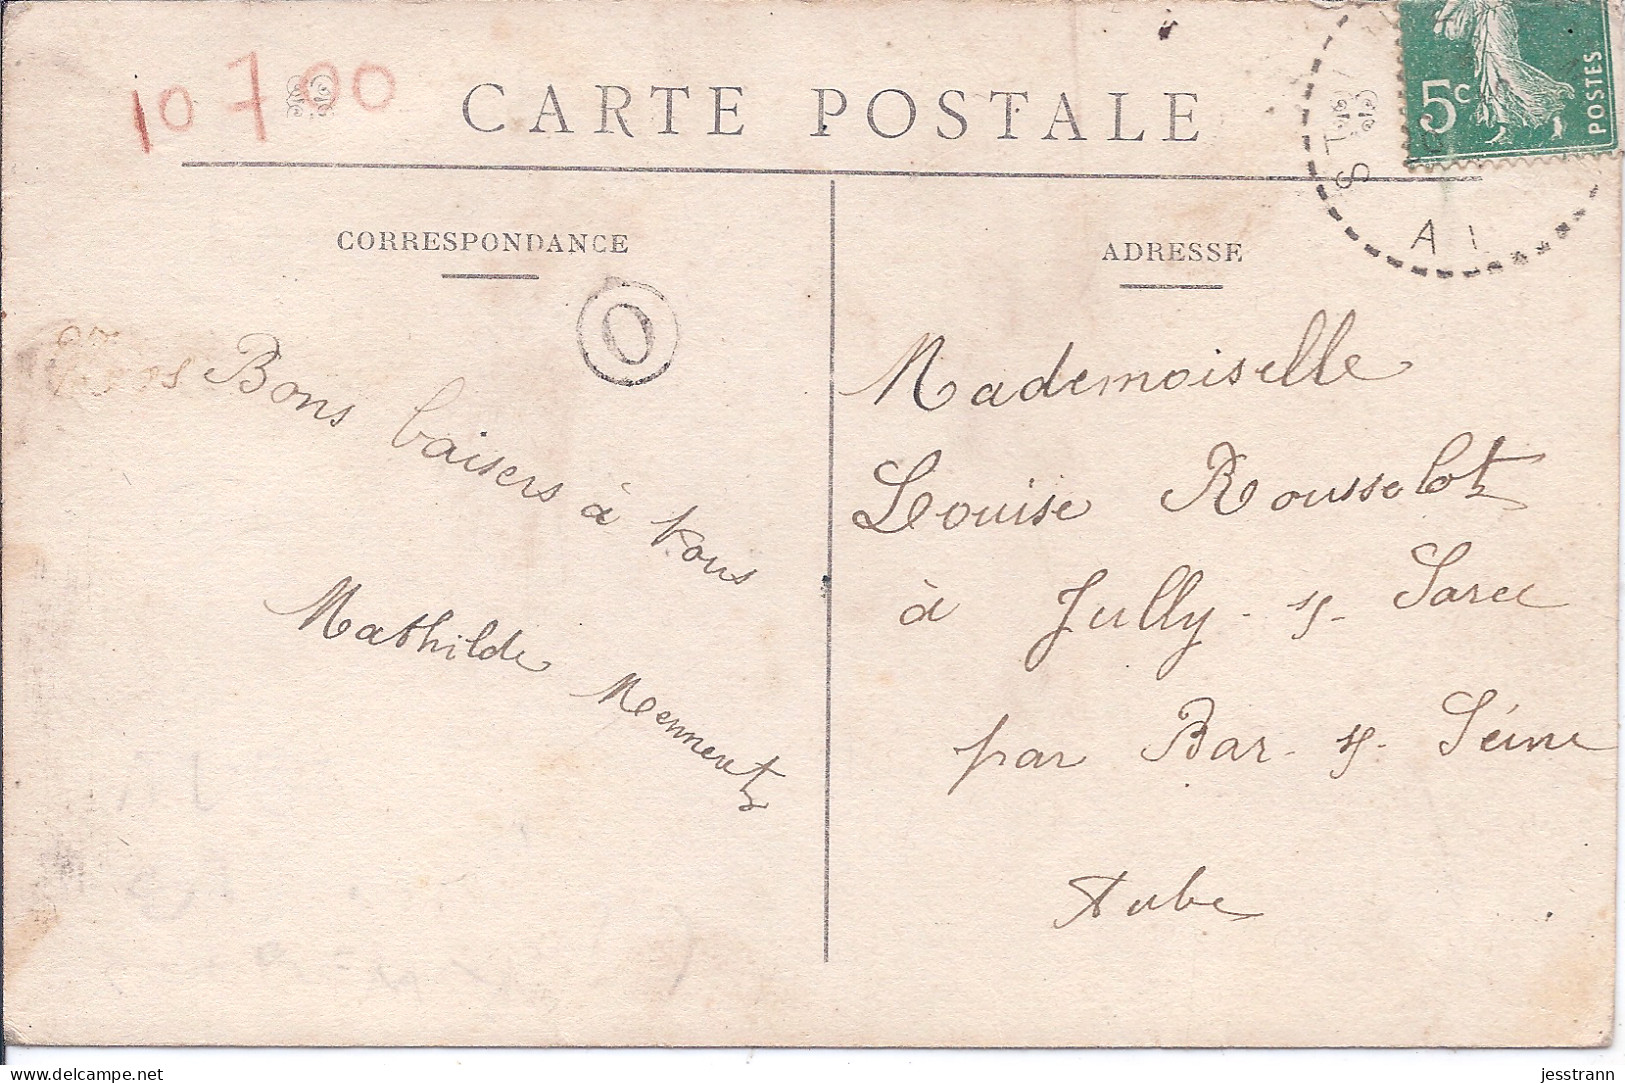 10 7 00
CARTE POSTALE
5c
POSTES
CORRESPONDANCE
O
Bons baisers à tous
Mathilde
ADRESSE
Mademoiselle
Louise Rousselot
à Jully - s/- Sarce
par Bar - s/- Seine
Aube
delcampe.net
jesstrann